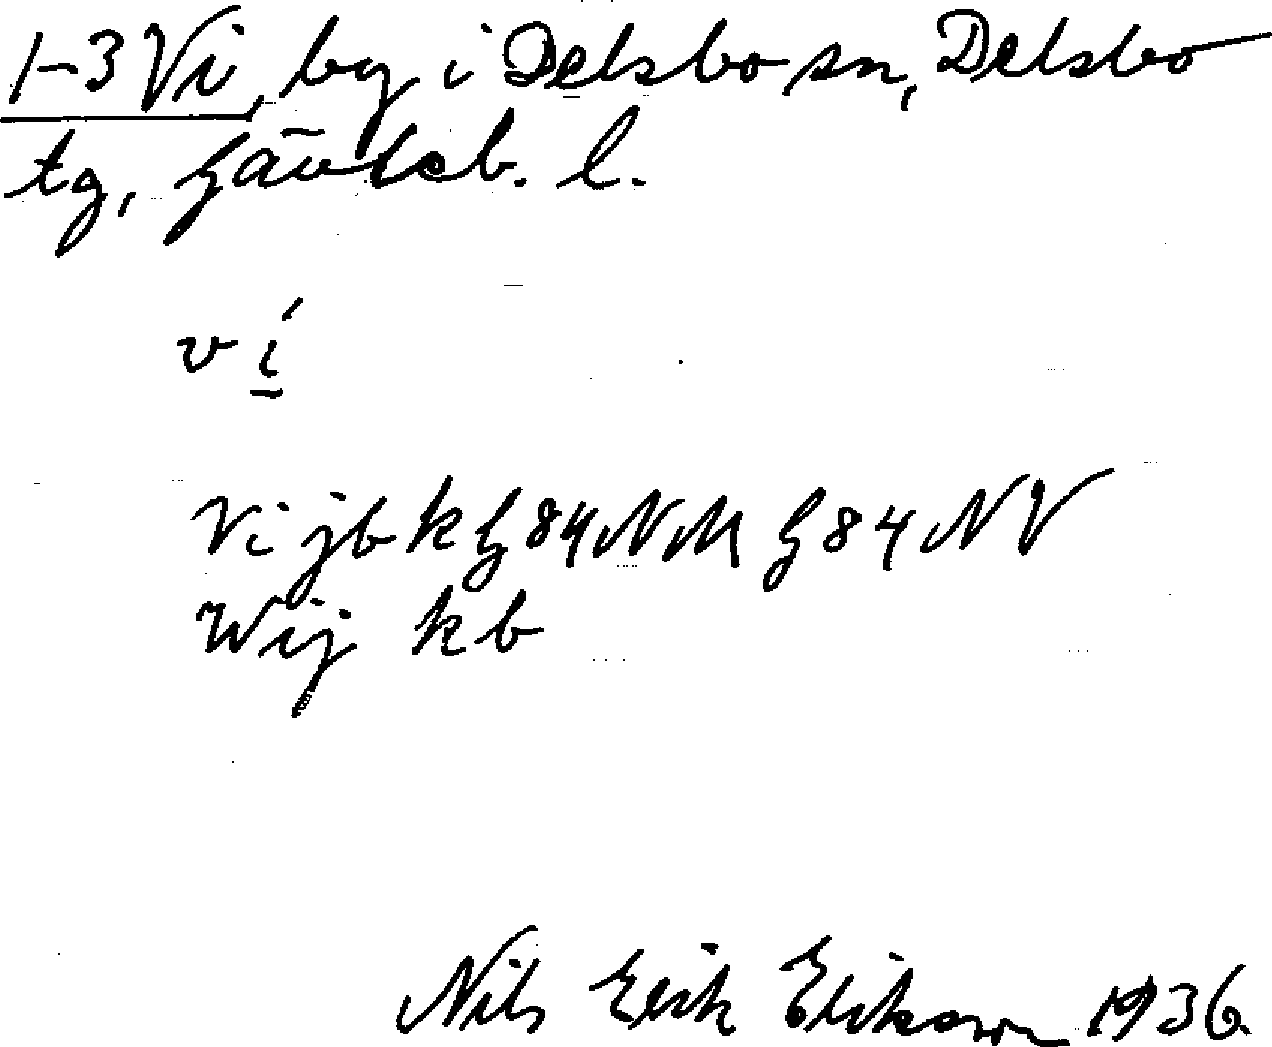 1-3 Vi, by i Delsbo sn, Delsbo
tg, Gävleb. l.
v í
Vi jb k G 84 NM G 84 NV
Wij kb
Nils Erik Erikson 1936.